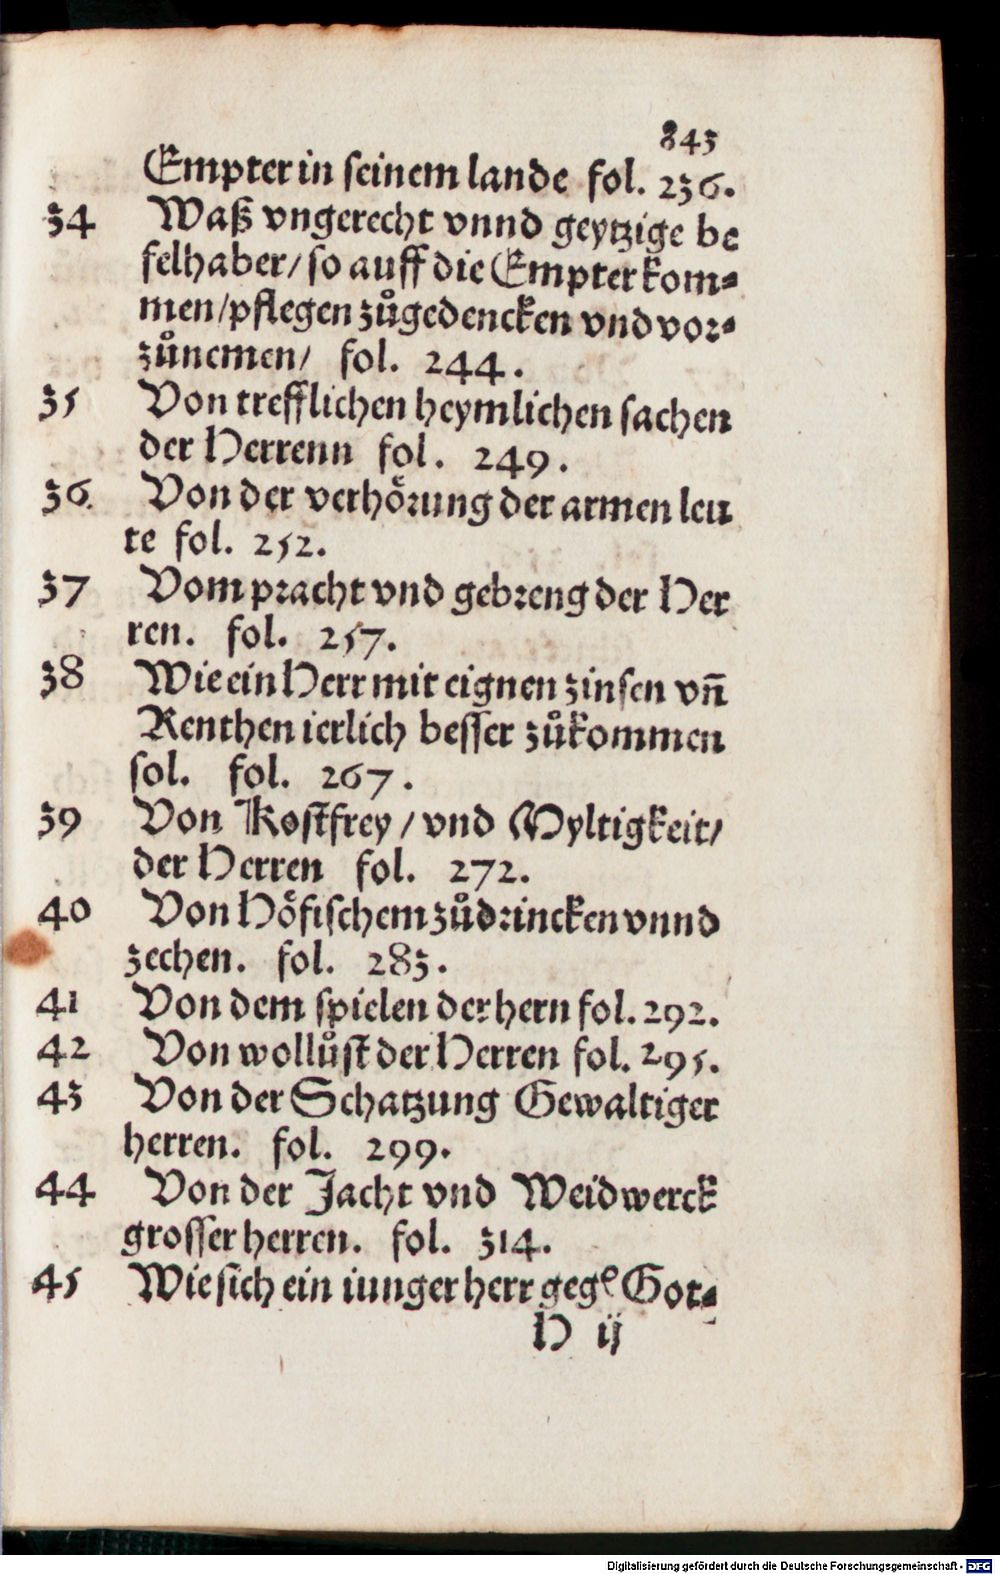 843
Empter in seinem lande fol. 236.
34 Waß vngerecht vnnd geytzige be
felhaber/ so auff die Empter kom⸗
men/pflegen zůgedencken vnd vor⸗
zůnemen/ fol. 244.
35 Von trefflichen heymlichen sachen
der Herrenn fol. 249.
36. Von der verhörung der armen leu
te fol. 252.
37 Vom pracht vnd gebreng der Her
ren. fol. 257.
38 Wie ein Herr mit eignen zinsen vñ
Renthen ierlich besser zůkommen
sol. fol. 267.
39 Von Kostfrey / vnd Myltigkeit/
der Herren fol. 272.
40 Von Höfischem zůdrincken vnnd
zechen. fol. 283.
41 Von dem spielen der hern fol. 292.
42 Von wollůst der Herren fol. 295.
43 Von der Schatzung Gewaltiger
herren. fol. 299.
44 Von der Jacht vnd Weidwerck
grosser herren. fol. 314.
45 Wie sich ein iunger herr gegē Got⸗
H ij
Digitalisierung gefördert durch die Deutsche Forschungsgemeinschaft - DFG